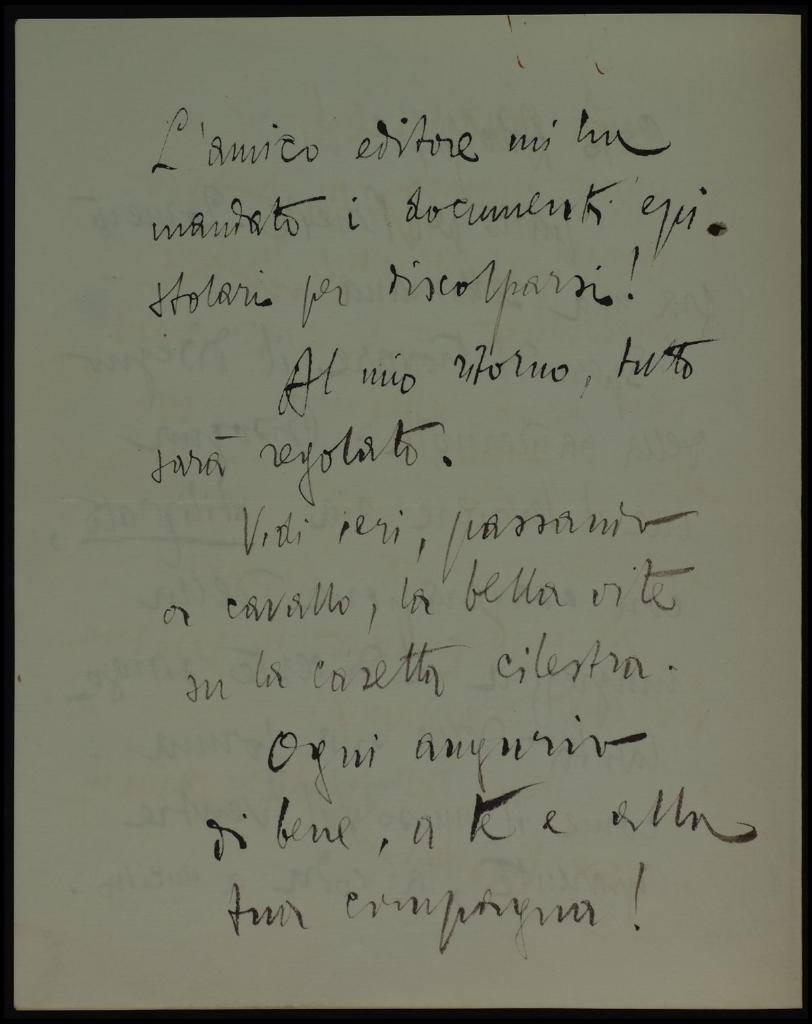 L'amico editore mi ha
mandato i documenti epi-
stolari per discolparsi!
Al mio ritorno, tutto
sarà regolato.
Vidi ieri, passando
a cavallo, la bella vite
su la casetta cilestra.
Ogni augurio
di bene, a te e alla
tua compagna!